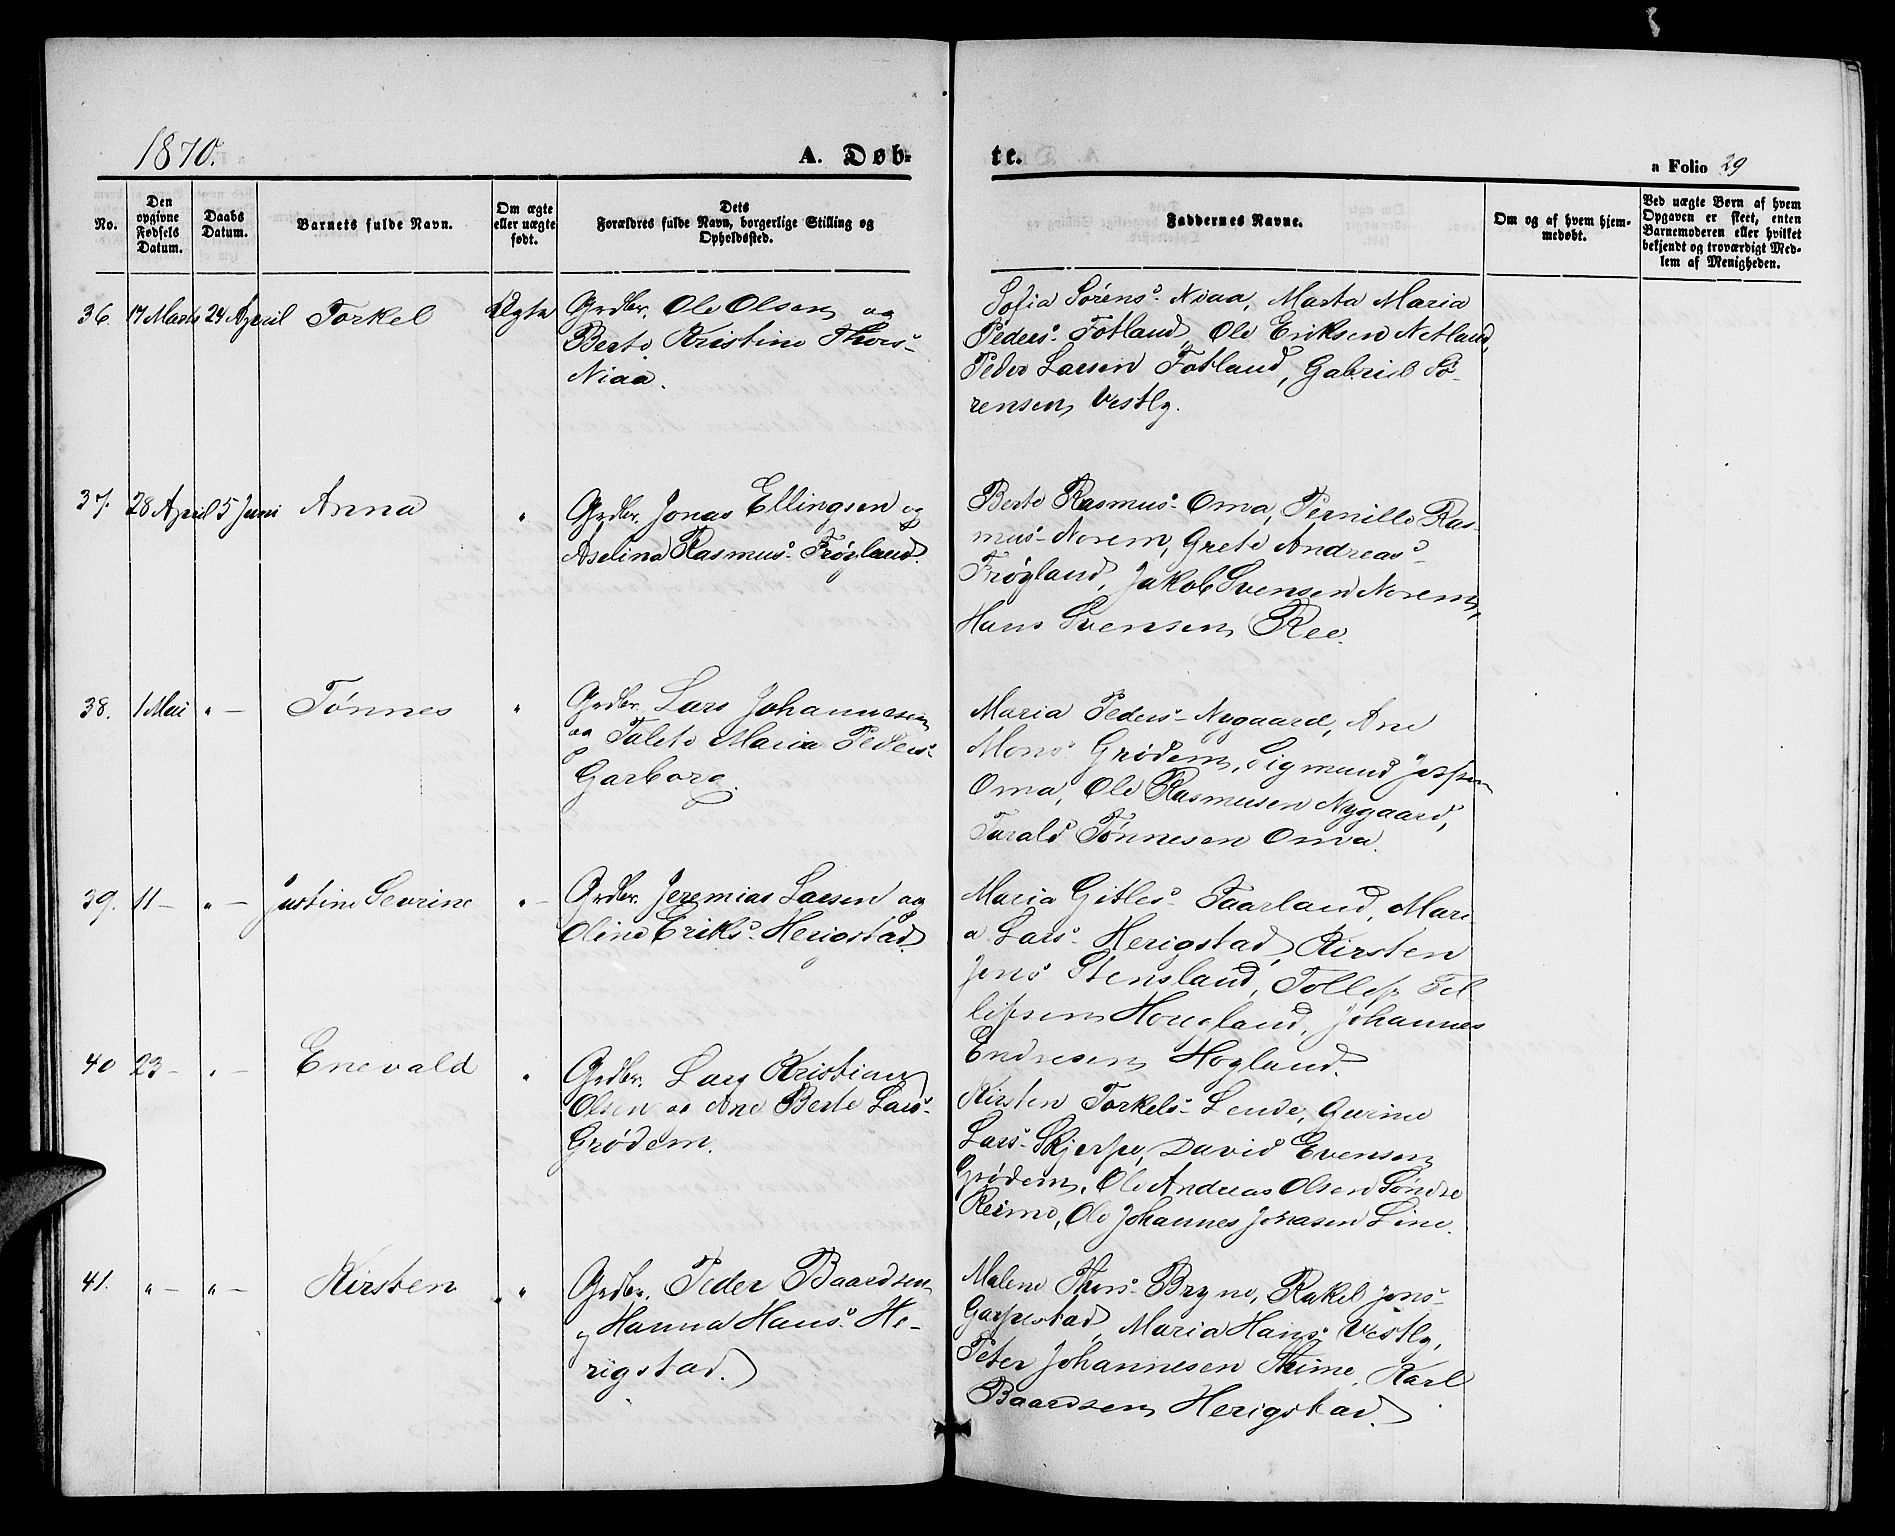 1870.
A. Døb-
te.
a Folio 29
No.
Den opgivne Fødsels Datum.
Daabs Datum.
Barnets fulde Navn.
Om ægte eller uægte født.
Dets Forældres fulde Navn, borgerlige Stilling og Opholdssted.
Faddernes Navne.
Om og af hvem hjemmedøbt.
Ved uægte Børn af hvem Opgaven er skeet, enten Barnemoderen eller hvilket bekjendt og troværdigt Medlem af Menigheden.
36. 17 Marts 24 April Torkel Ægte
Grdbr. Ole Olsen og
Berte Kristine Thors-
Niaa.
Sofia Sørens- Niaa, Marta Maria
Peders- Fotland, Ole Eriksen Netland,
Peder Larsen Fotland, Gabriel Sø-
rensen Vestly.
37. 28 April 5 Juni Anna "
Grdbr. Jonas Ellingsen og
Aselina Rasmus- Frøyland.
Berte Rasmus- Oma, Pernille Ras-
mus- Norem, Grete Andreas-
Frøyland, Jakob Svensen Norem,
Hans Svensen Ree.
38. 1 Mai " - Tønnes "
Grdbr. Lars Johannesen
og Talete Maria Peders-
Garborg.
Maria Peders- Nygaard, Ane
Mons- Grødem, Sigmund Jespersen
Oma, Ole Rasmusen Nygaard,
Tarald Tønnesen Oma.
39. 11 - " - Justine Sevrine " -
Grdbr. Jeremias Larsen og
Oline Eriks- Herigstad.
Maria Gitles- Taarland, Mari
a Lars- Herigstad, Kirsten
Jens- Stensland, Tollef Tol
lefsen Hougland, Johannes
Endresen Hogland.
40 23 - " - Enevald "
Grdbr. Lars Kristian
Olsen og Ane Berte Lars-
Grødem.
Kirsten Torkels- Lende, Gurine
Lars- Skjerpe, David Evensen
Grødem, Ole Andreas Olsen Søndre
Reime, Ole Johannes Jonasen Line.
41. " - " - Kirsten "
Grdbr. Peder Baardsen
og Hanna Hans- He-
rigstad.
Malene Thors- Bryne, Rakel Jens-
Garpestad, Maria Hans- Vestly,
Peter Johannesen Thime, Karl
Baardsen Herigstad.